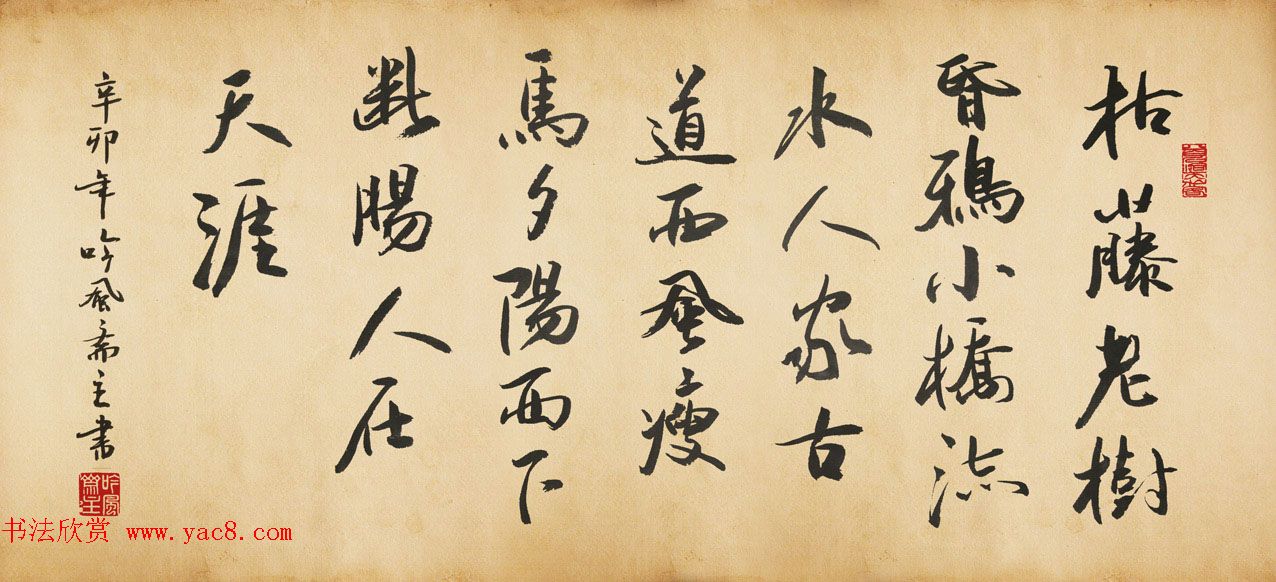 枯藤老樹
昏鴉小橋流
水人家古
道西風瘦
馬夕陽西下
斷腸人在
天涯
辛卯年吟風斋主書
吟風齋主
书法欣赏 www.yac8.com